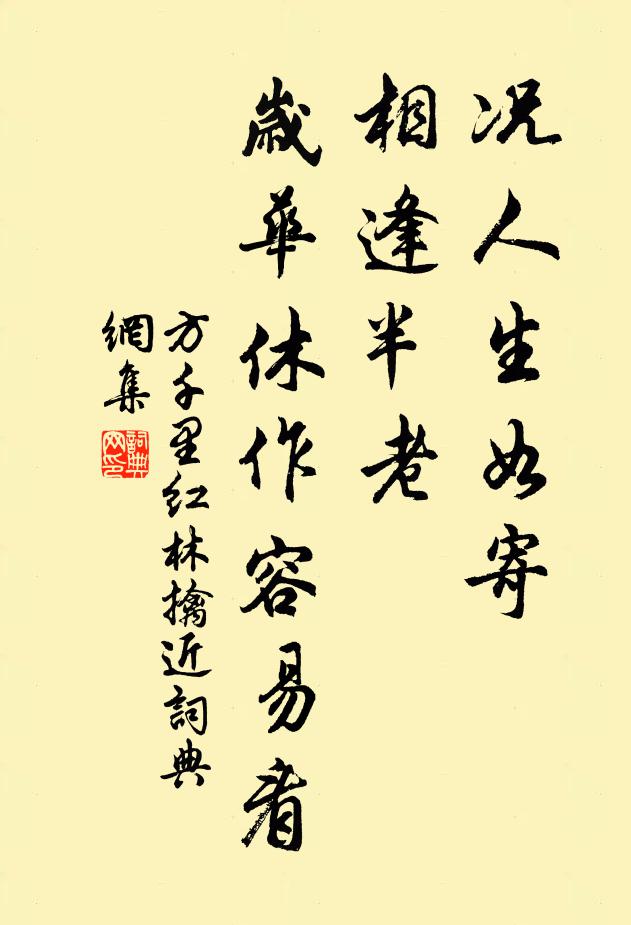 况人生如寄
相逢半老
歲華休作容易看
方千里紅林擒近詞典
網集
詞典網印